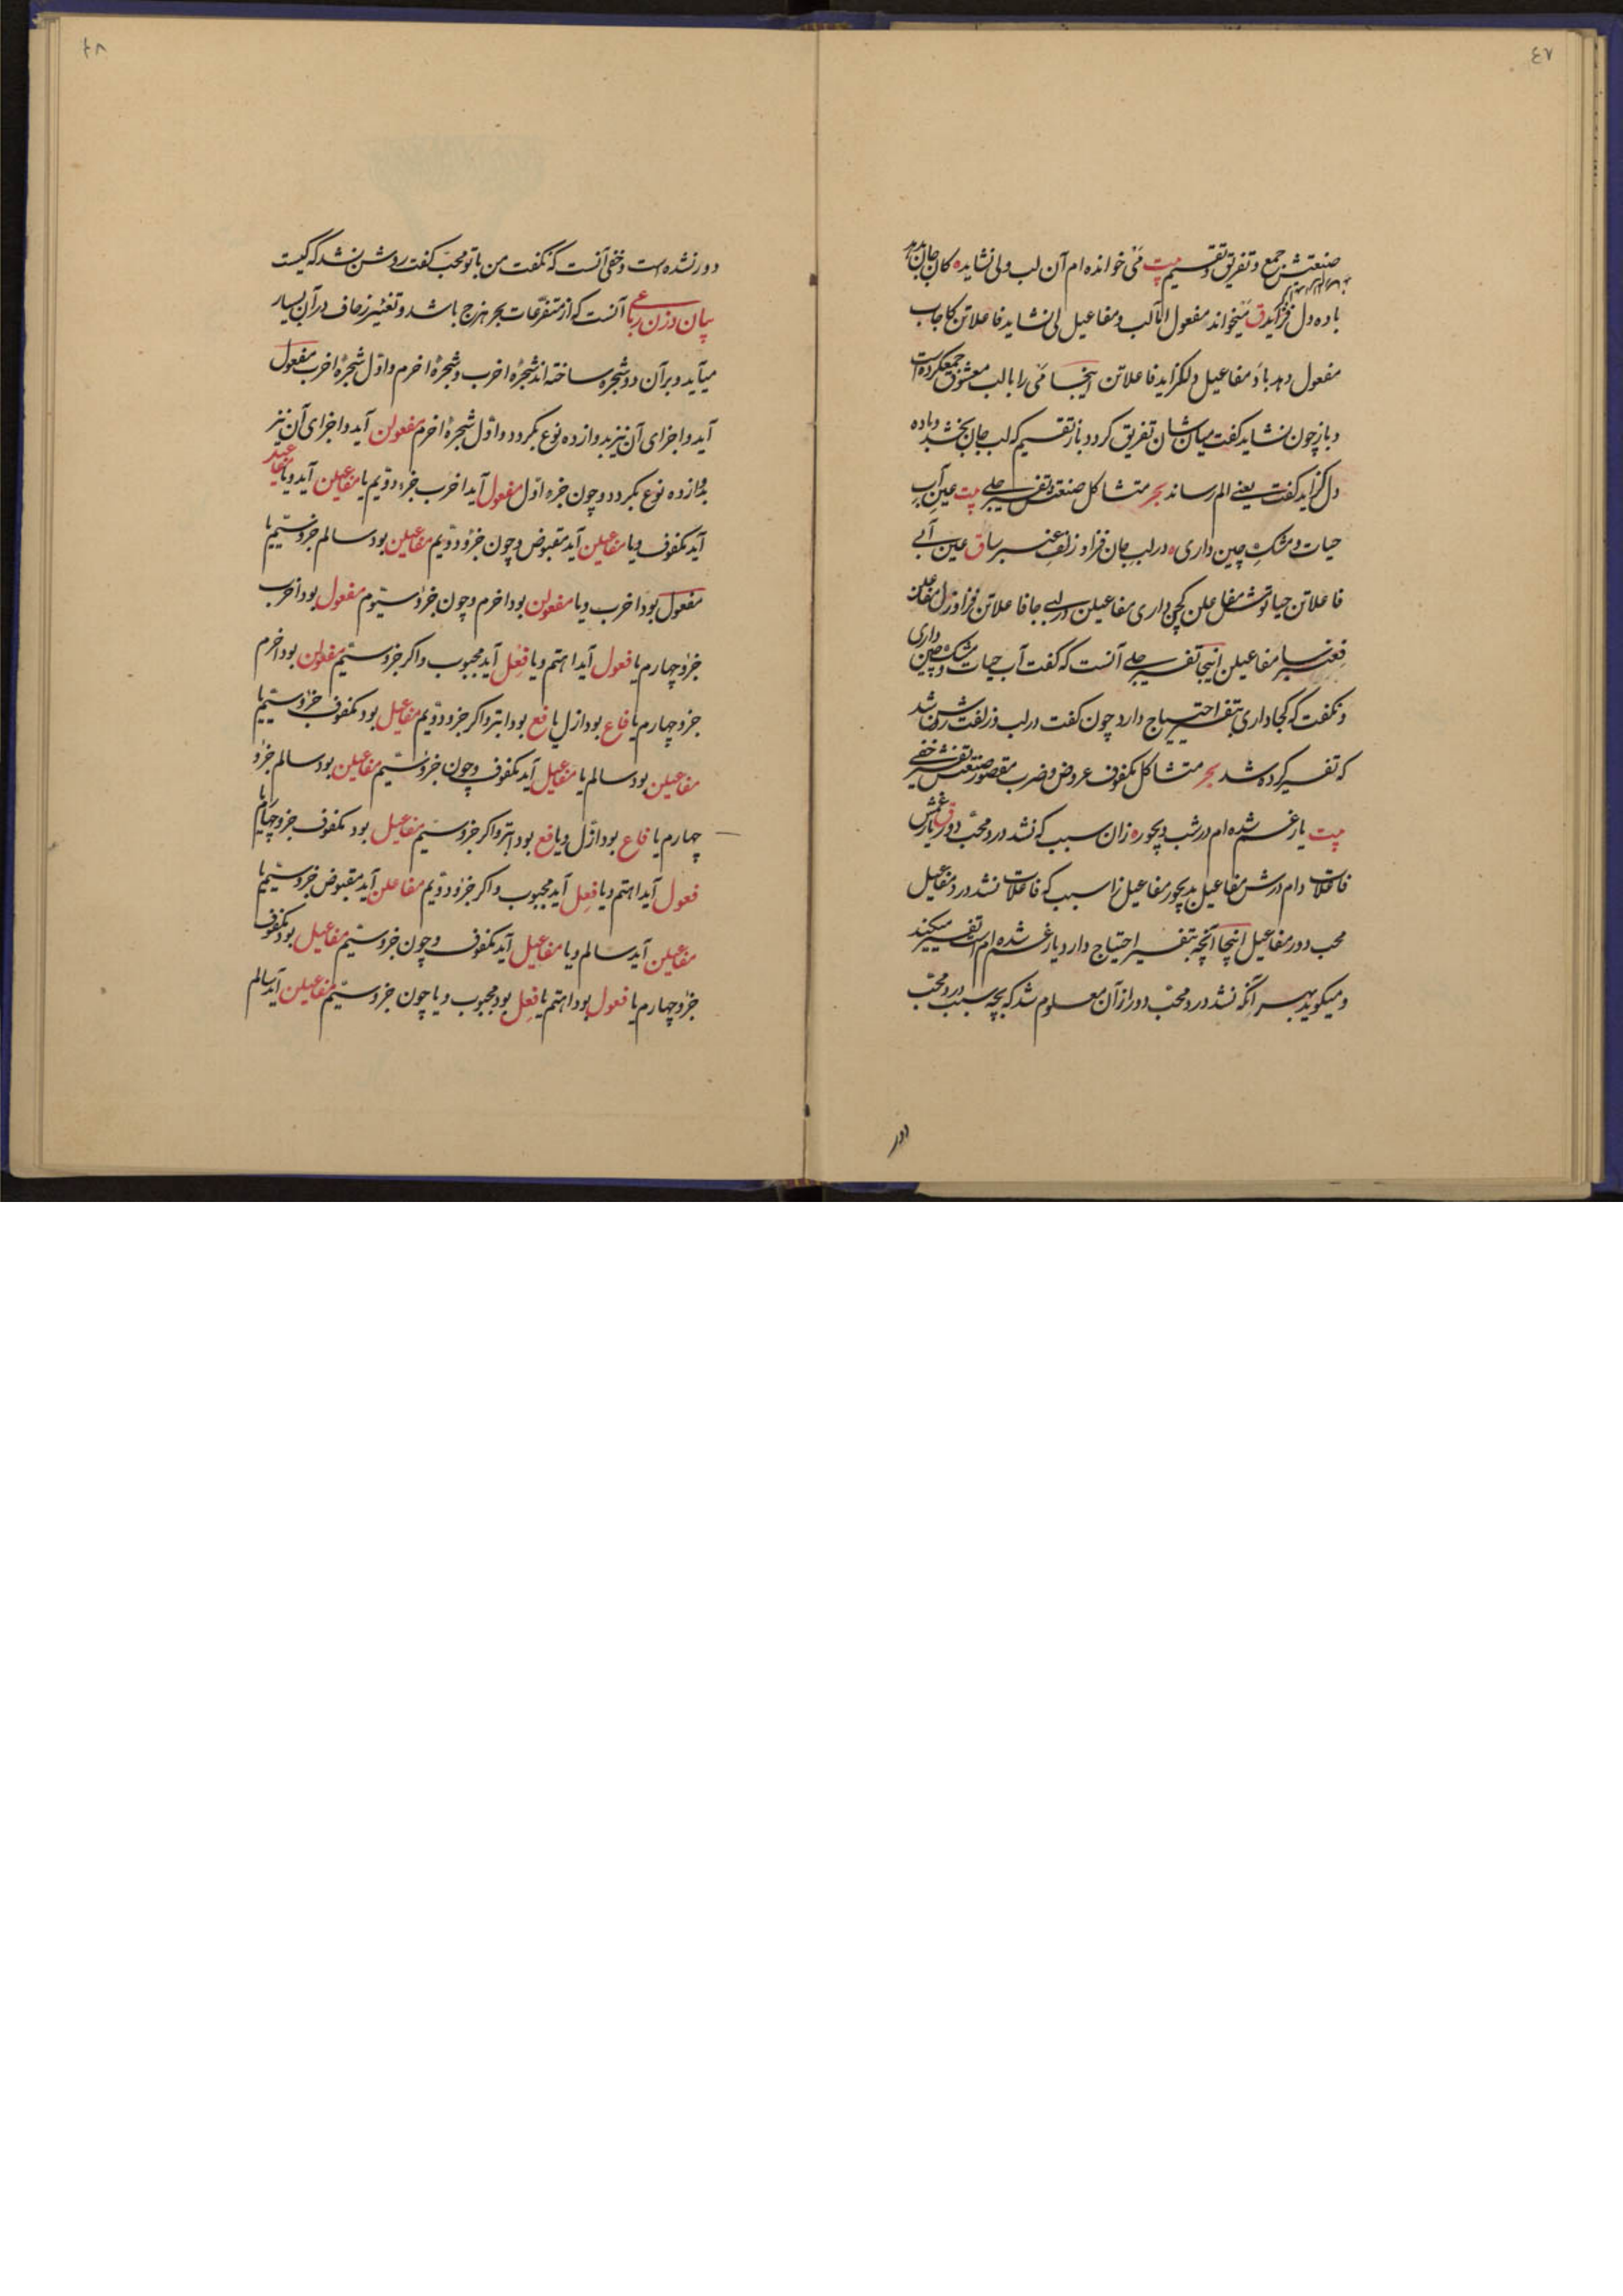 ٤٧
صنعتش جمع و تفریق و تقسیم بیت می خوانده ام آن لب و لی نشاید کان جان بدهد
باده دل گزاید ق میخواند مفعول ام آلب و مفاعیل لی نشاید فاعلاتن کاجاب
مفعول دهد باد مفاعیل دلگزاید فاعلاتن اینجا می را با لب معشوق جمع کرده است
و باز چون نشاید گفت میان شان تفریق کرد و باز تقسیم که لب جان بخشد و باده
دل گزاید گفت یعنی الم رساند بحر متشاکل صنعت تفسیر جلی بیت عین آب
حیات و مشک چین داری در لب جان فزا و زلف عنبرسا ق عین آبی
فاعلاتن حیاتو مش مفاعلن کچین داری مفاعیلن در لبی جا فاعلاتن فزاو زل مفاعلن
فعنبرسا مفاعیلن اینجا تفسیر جلی آنست که گفت آب حیات و مشک چین داری
و نگفت که کجا داری بتفسیر احتیاج دارد چون گفت در لب و زلفت روشن شد
که تفسیر کرده شد بحر متشاکل مکفوف عروض و ضرب مقصور صنعتش تفسیر خفی
بیت یار غم شده ام در شب دیجور زان سبب که نشد درد محب دور ق یار غمش
فاعلات دام درش مفاعیل بدیجور مفاعیل زا سبب که فاعلات نشد درد مفاعیل
محب دور مفاعیل اینجا آنچه بتفسیر احتیاج دارد یار غم شده ام است تفسیر میکند
و میگوید بهر آنکه نشد درد محب دور از آن معلوم شد که بچه سبب درد محب
دور
٤٨
دور نشده است و خفی آنست که نگفت من با تو محب گفت روشن نشد که کیست
بیان وزن رباعی آنست که از متفرعات بحر هزج باشد و تغییر زحاف در آن بسیار
میآید و بر آن دو شجره ساخته اند شجرهٔ اخرب و شجرهٔ اخرم و اول شجرهٔ اخرب مفعول
آید و اجزای آن نیز بدوازده نوع بگردد و اول شجرهٔ اخرم مفعولن آید و اجزای آن نیز
بدوازده نوع بگردد و چون جزء اول مفعول آید اخرب جزء دویم یا مفاعیلن آید و یا مفاعیل
آید مکفوف و یا مفاعلن آید مقبوض و چون جزو دویم مفاعیلن بود سالم جزو سیم یا
مفعول بود اخرب و یا مفعولن بود اخرم و چون جزو سیوم مفعول بود اخرب
جزو چهارم یا فعول آید اهتم و یا فعل آید مجبوب و اگر جزو سیم مفعولن بود اخرم
جزو چهارم یا فاع بود ازل یا فع بود ابتر و اگر جزو دویم مفاعیل بود مکفوف جزو سیم یا
مفاعیلن بود سالم یا مفاعیل آید مکفوف و چون جزو سیم مفاعیلن بود سالم جزو
چهارم یا فاع بود ازل و یا فع بود ابتر و اگر جزو سیم مفاعیل بود مکفوف جزو چهارم یا
فعول آید اهتم و یا فعل آید مجبوب و اگر جزو دویم مفاعلن آید مقبوض جزو سیم یا
مفاعیلن آید سالم و یا مفاعیل آید مکفوف و چون جزو سیم مفاعیل بود مکفوف
جزو چهارم یا فعول بود اهتم یا فعل بود مجبوب و یا چون جزو سیم مفاعیلن آید سالم